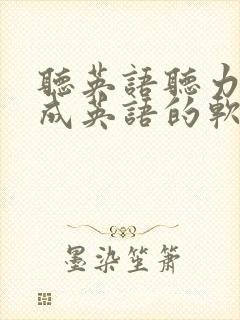 聽英語聽力
成英語的軟
墨染笙簫